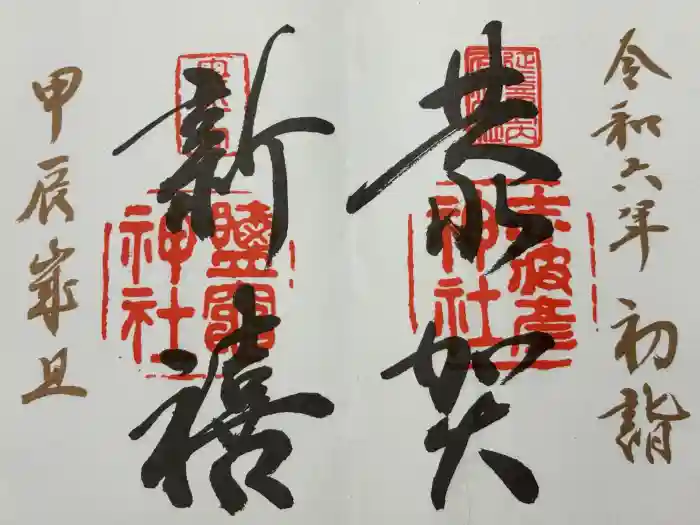 令和六年 初詣
恭賀
志波彦
神社
新禧
鹽竈
神社
甲辰歳旦